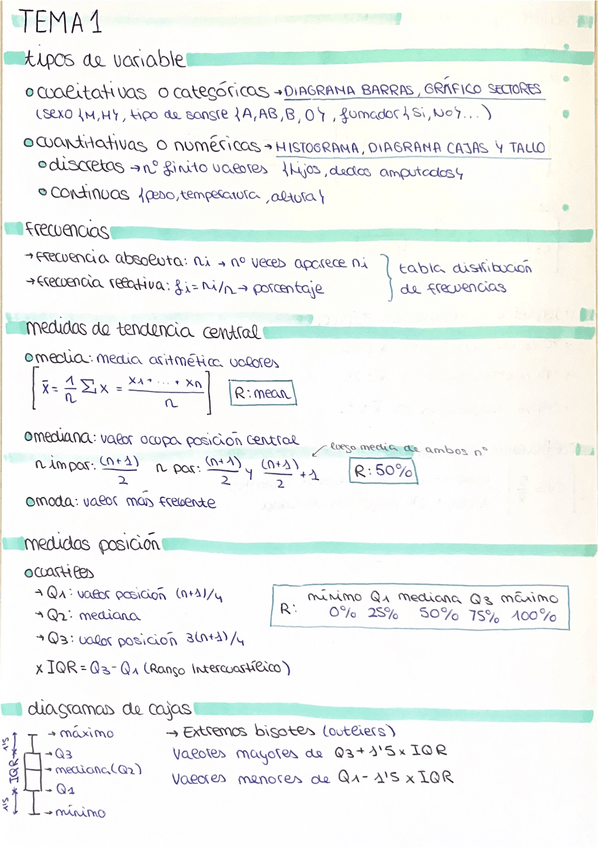 TEMA 1
tipos de variable
cualitativas o categóricas → DIAGRAMA BARRAS, GRÁFICO SECTORES
(sexo {M,H}, tipo de sangre {A,AB,B,O}, fumador {Si,No}...)
cuantitativas o numéricas → HISTOGRAMA, DIAGRAMA CAJAS Y TALLO
discretas → nº finito valores {hijos, dedos amputados}
continuas {peso, temperatura, altura}
frecuencias
→ frecuencia absoluta: ni → nº veces aparece ni
→ frecuencia relativa: fi = ni/n → porcentaje
tabla distribución
de frecuencias
medidas de tendencia central
media: media aritmética valores
[x̄ = 1/n Σ x = (x1 + ... + xn)/n] R: mean
mediana: valor ocupa posición central
luego media de ambos nº
n impar: (n+1)/2 n par: (n+1)/2 y (n+1)/2 + 1 R: 50%
moda: valor más frecuente
medidas posición
cuartiles
→ Q1: valor posición (n+1)/4
→ Q2: mediana
→ Q3: valor posición 3(n+1)/4
x IQR = Q3 - Q1 (Rango Intercuartílico)
R: mínimo Q1 mediana Q3 máximo
0% 25% 50% 75% 100%
diagramas de cajas
→ máximo
→ Q3
→ mediana (Q2)
→ Q1
→ mínimo
1'5 x IQR x 1'5
→ Extremos bigotes (outliers)
valores mayores de Q3 + 1'5 x IQR
valores menores de Q1 - 1'5 x IQR